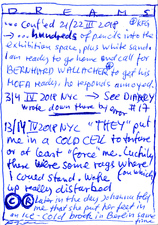 D R E A M S
... cont'ed 21/22 III 2018
→ ... hundreds of pencils into the
exhibition space, plus white sand.
I am ready to go home and call for
BERNHARD to get his
ready, he responds annoyed.
3/4 IV 2018 NYC → See Diary
Wrote down there by error #17
13/14 IV 2018 NYC "THEY" put
me in a COLD CELL to torture
or at least "force" me. Luckily
there were some rags where
I could stand. Woke
up really disturbed
© R later in the day Johanna tells
me that she put her feet in
an ICE-Cold brook in Berlin same